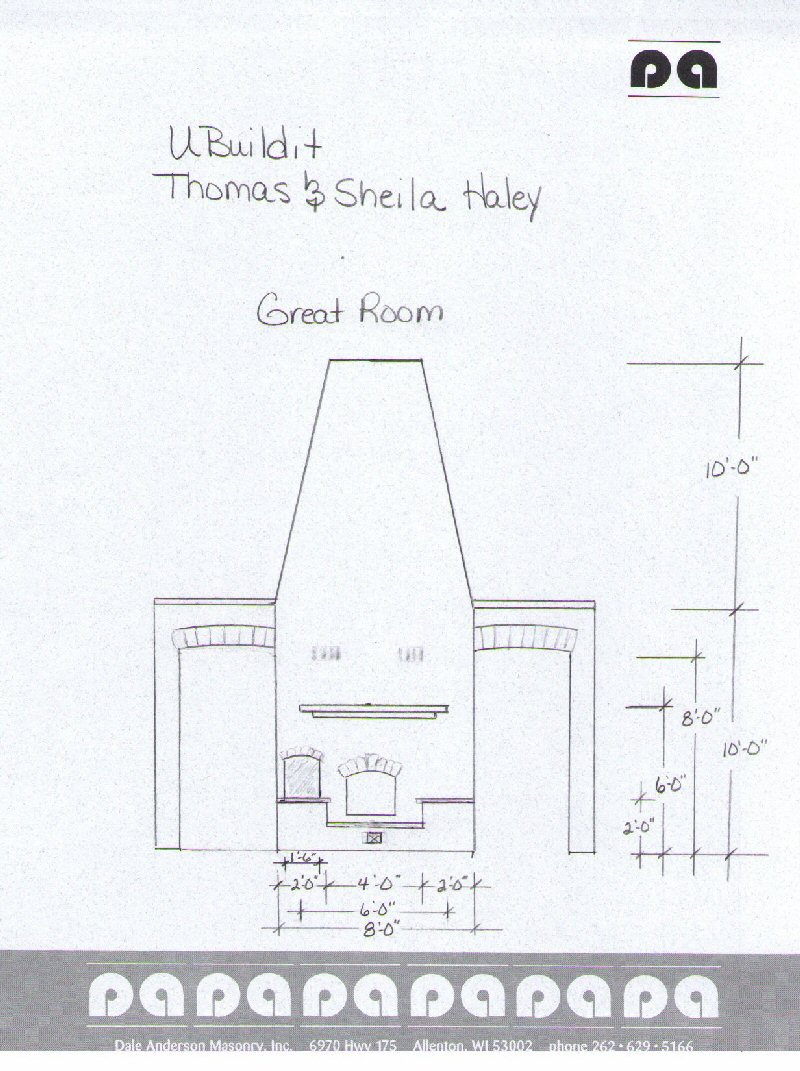 pa
UBuildit
Thomas & Sheila Haley
Great Room
10'-0"
8'-0"
10'-0"
6'-0"
2'-0"
1'-6"
2'-0" 4'-0" 2'-0"
6'-0"
8'-0"
pa pa pa pa pa pa
Dale Anderson Masonry, Inc. 6970 Hwy 175 Allenton, WI 53002 phone 262·629·5166